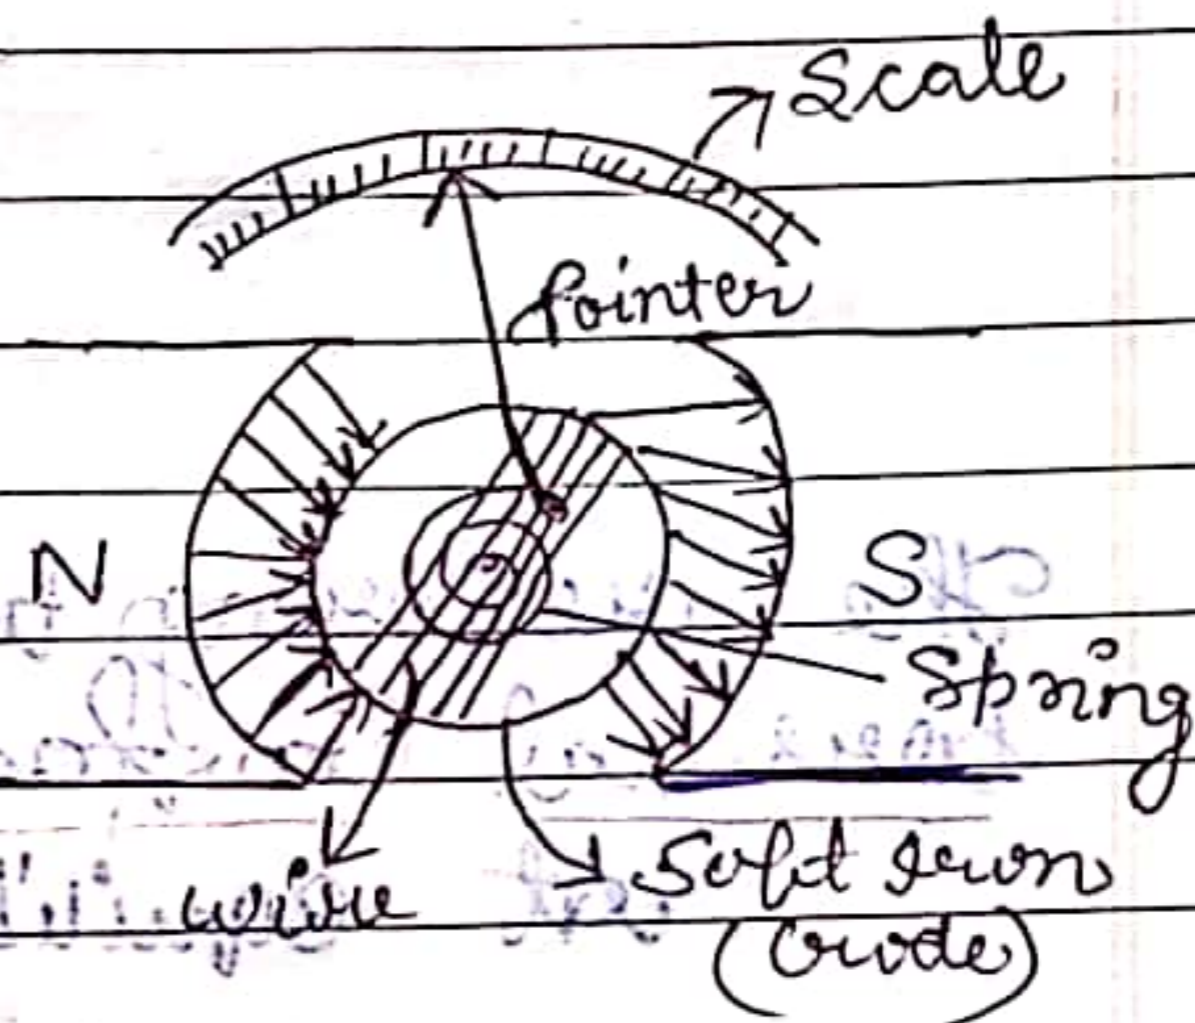 Scale
Pointer
N
S
Spring
wire
Soft Iron